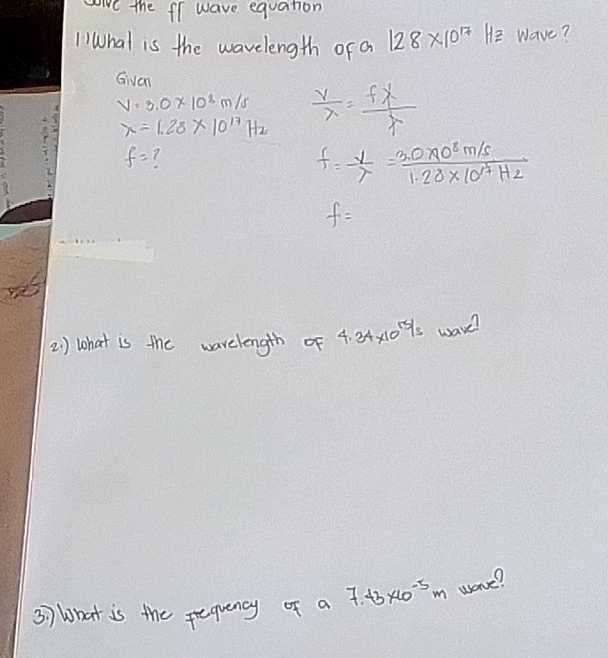 Solve the ff wave equation
1.) What is the wavelength of a 1.28 x 10¹⁷ Hz wave?
Given
V = 3.0 x 10⁸ m/s
λ = 1.28 x 10¹⁷ Hz
f = ?
v/λ = fλ/λ
f = v/λ = 3.0 x 10⁸ m/s / 1.28 x 10¹⁷ Hz
f =
2.) What is the wavelength of 4.34 x 10¹⁵/s wave?
3.) What is the frequency of a 7.43 x 10⁻⁵ m wave?